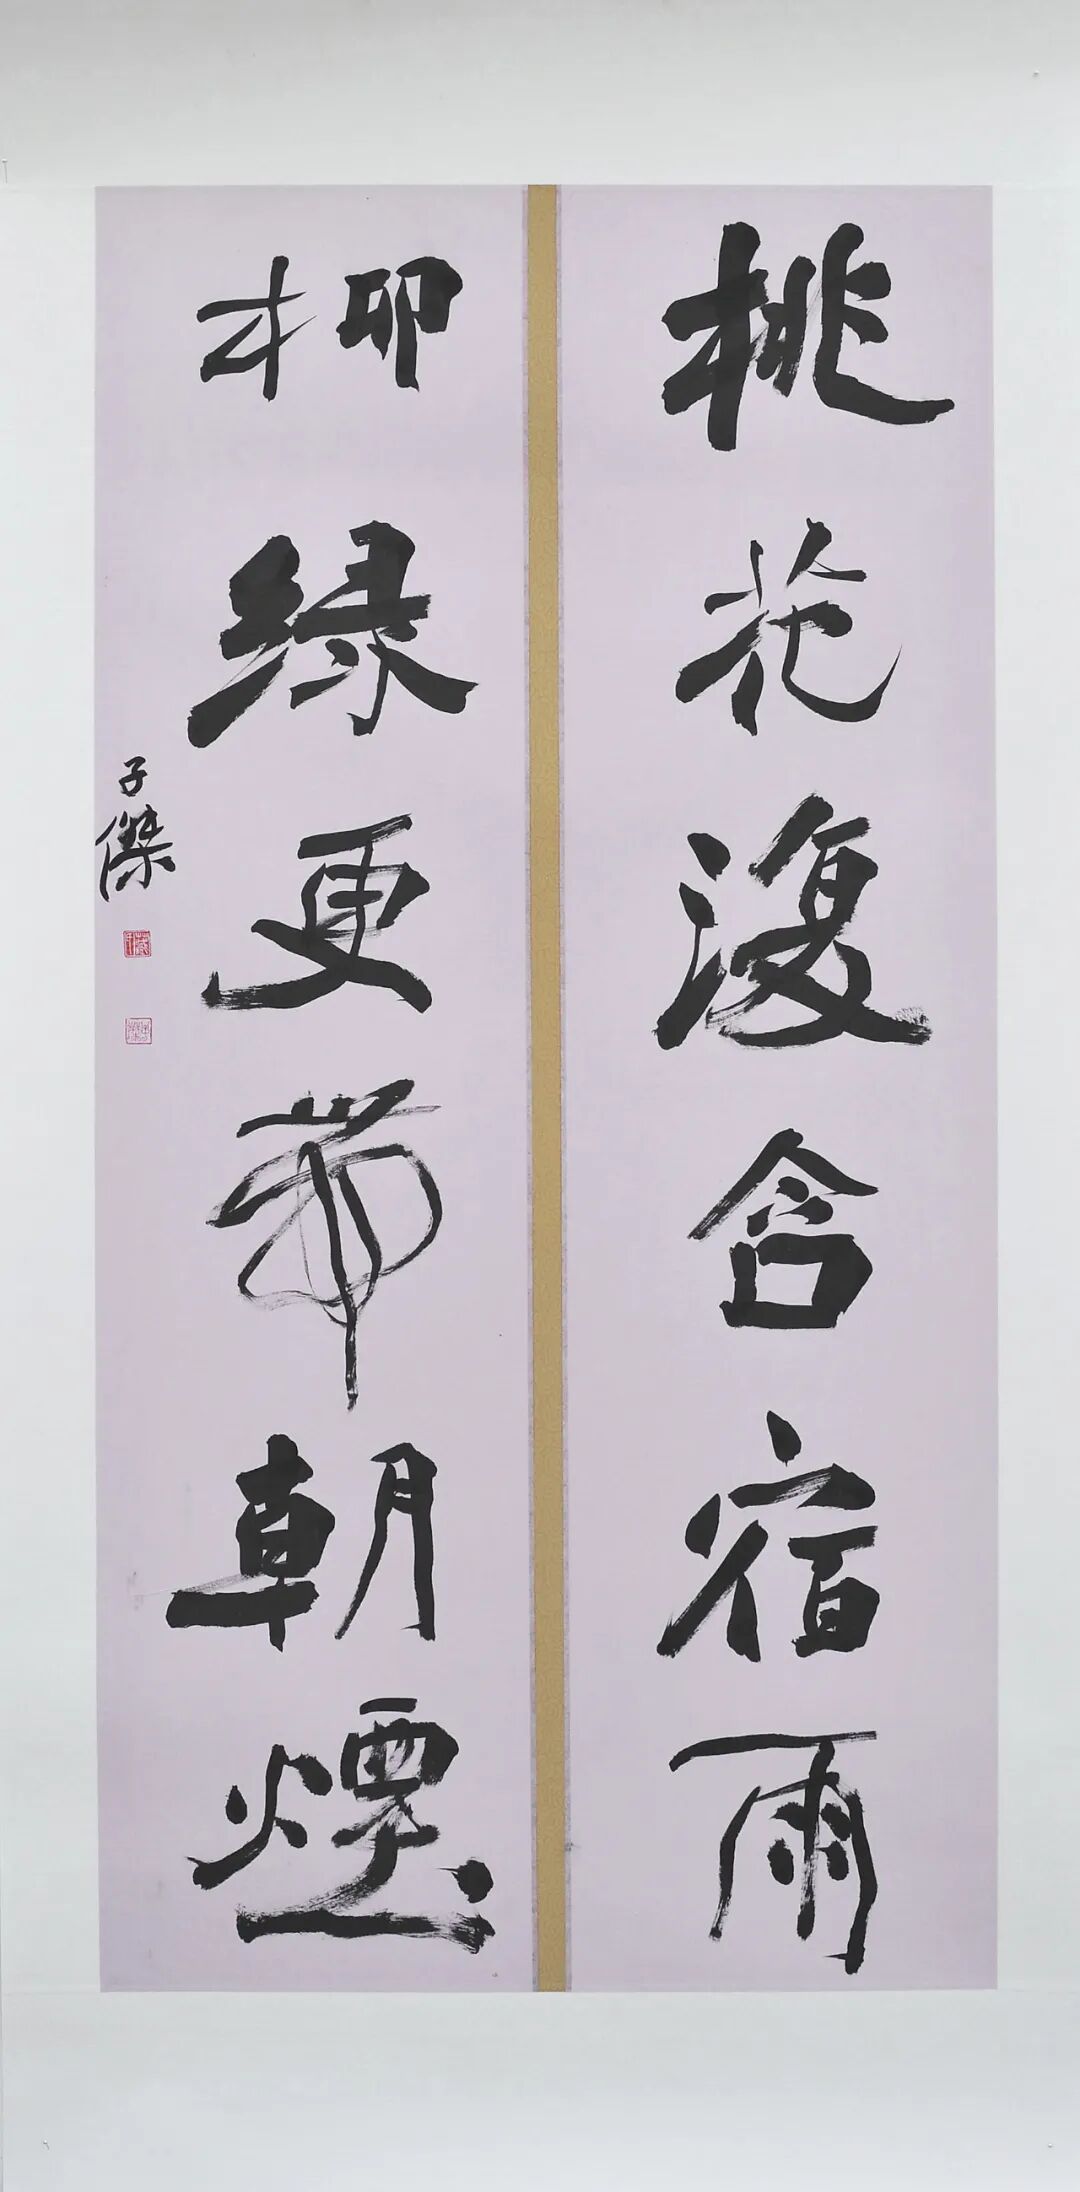 桃花復含宿雨
柳緑更带朝煙
子傑